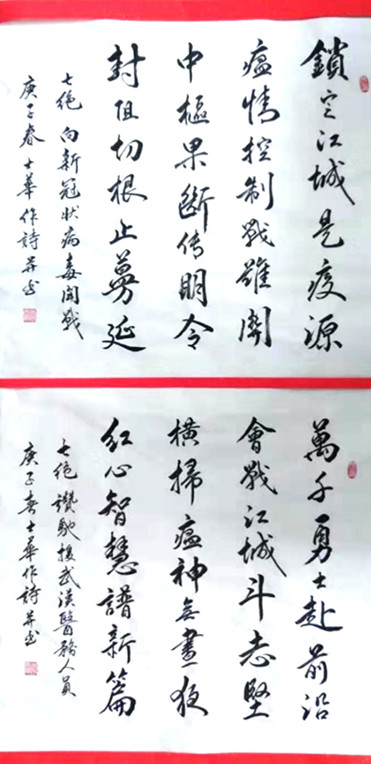 鎖定江城是疫源
瘟情控制戰雄關
中樞果斷传明令
封阻切根止蔓延
七绝 向新冠状病毒開戰
庚子春士華作詩并书
萬千勇士赴前沿
會戰江城斗志堅
横掃瘟神無晝夜
红心智慧譜新篇
七绝 讚馳援武漢醫務人員
庚子春士華作詩并书